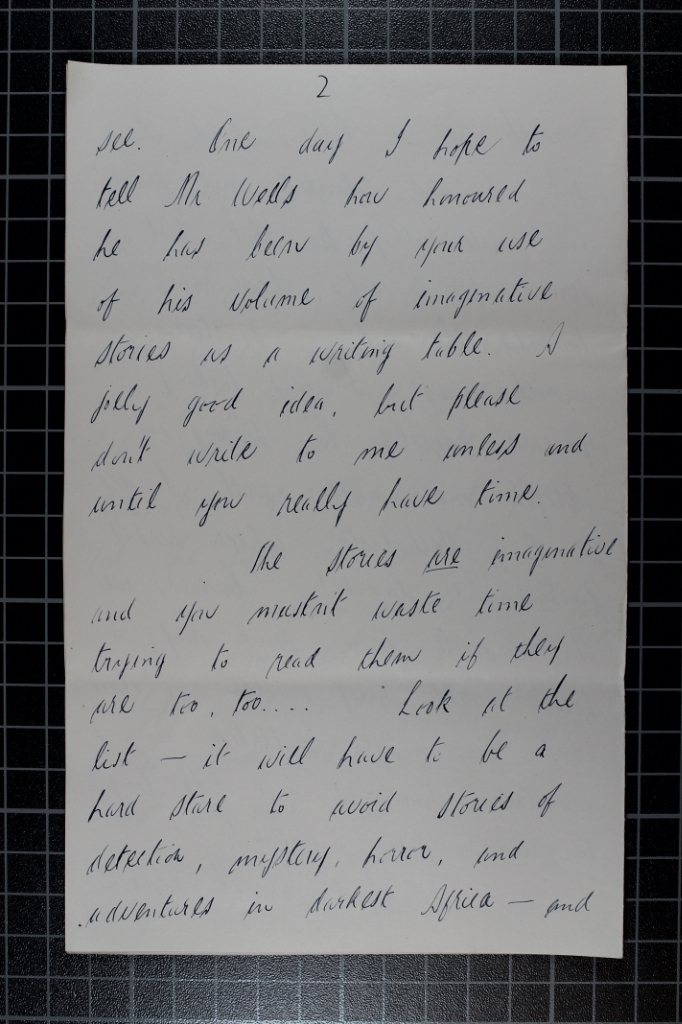 2
see. One day I hope to
tell Mr Wells how honoured
he has been by your use
of his volume of imaginative
stories as a writing table. A
jolly good idea, but please
don't write to me unless and
until you really have time.
The stories are imaginative
and you mustn't waste time
trying to read them if they
are too, too.... Look at the
list — it will have to be a
hard stare to avoid stories of
detection, mystery, horror, and
adventures in darkest Africa — and